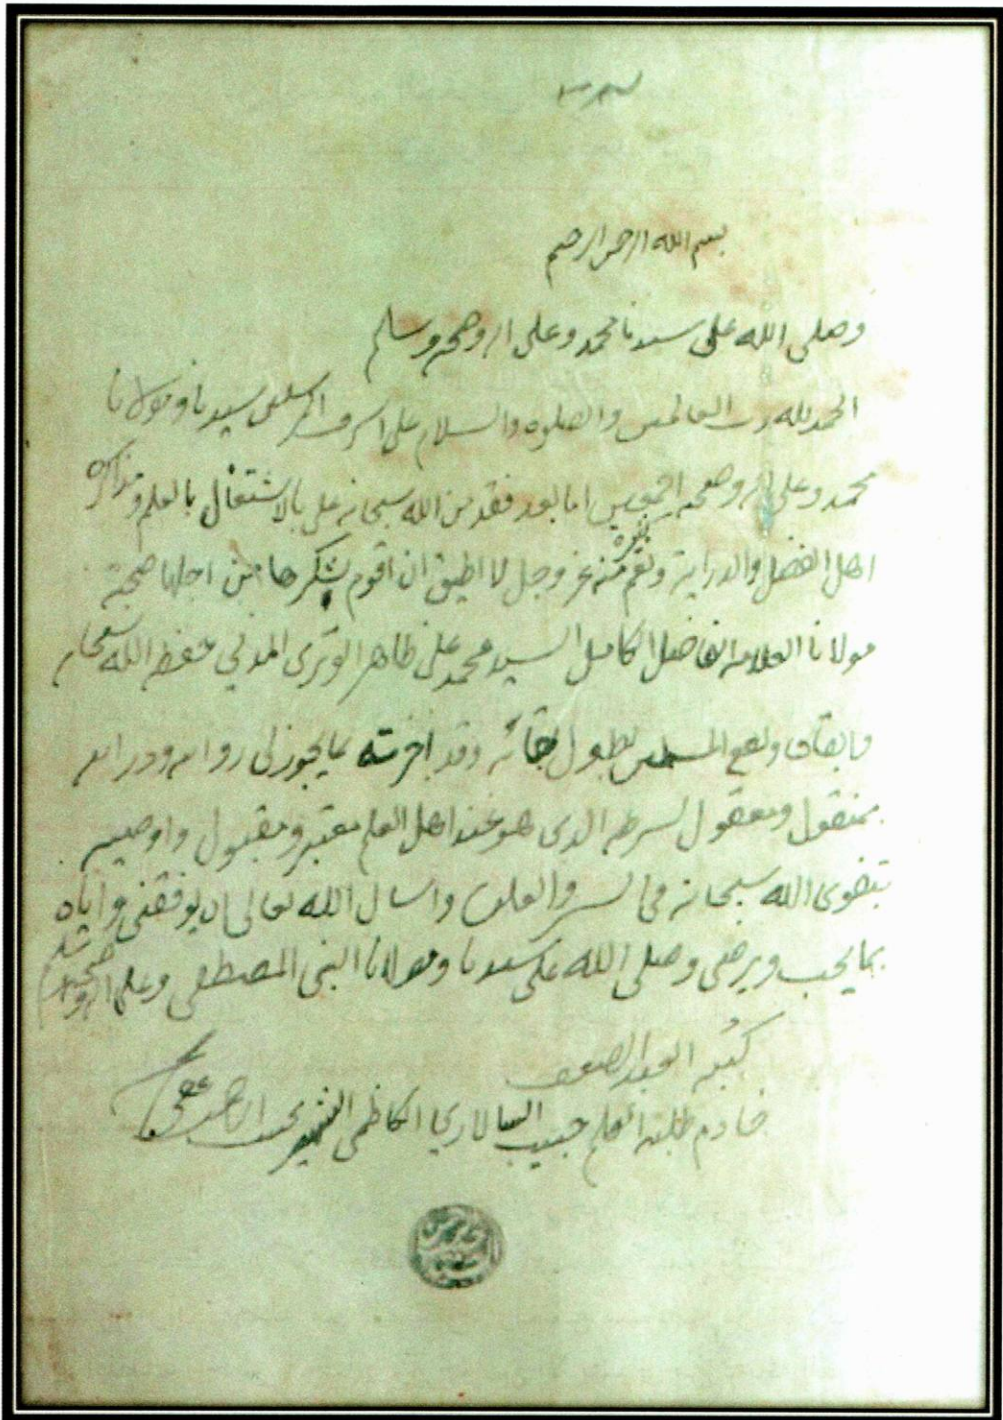 بسم الله الرحمن الرحيم
وصلى الله على سيدنا محمد وعلى اله وصحبه وسلم
الحمد لله رب العالمين والصلوه والسلام على اشرف المرسلين سيدنا ومولانا
محمد وعلى اله وصحبه اجمعين اما بعد فقد من الله سبحانه علي بالاشتغال بالعلم ومذاكره
اهل الفضل والدراية ونعم منه عز وجل لا اطيق ان اقوم بشكرها من اجلها صحبة
مولانا العلامه الفاضل الكامل السيد محمد علي ظاهر الوتري المدني حفظه الله سبحانه
وابقاه ونفع المسلمين بطول بقائه وقد اجزته بما يجوز لي روايه ودرايه
بمنقول ومعقول بشرطه الذي هو عند اهل العلم معتبر ومقبول واوصيه
بتقوى الله سبحانه في السر والعلن واسال الله تعالى ان يوفقني واياه
بما يحب ويرضى وصلى الله على سيدنا ومولانا النبي المصطفى وعلى اله وصحبه
كتبه العبد الضعيف
خادم طلبة العلم حبيب الكاظمي الشهير